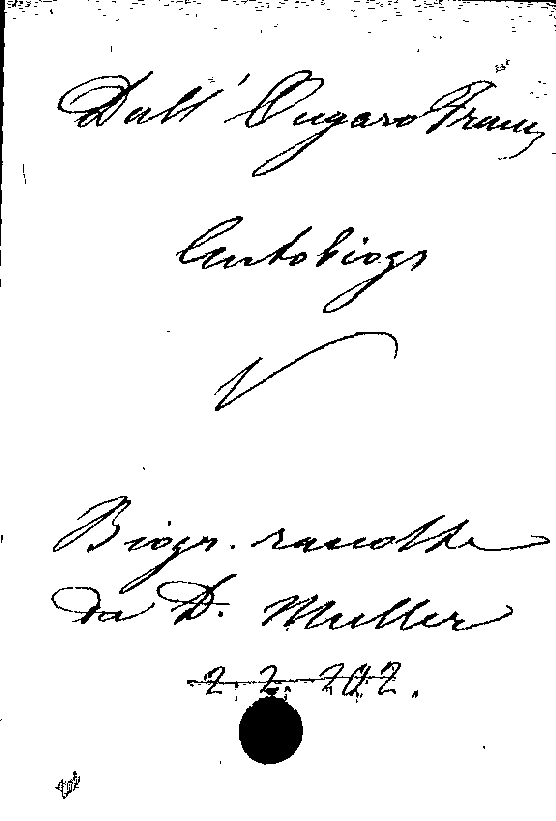 Dall'Ongaro Franc
Autobiogr
V
Biogr. raccolte
da D. Muller
2. 2. 202.